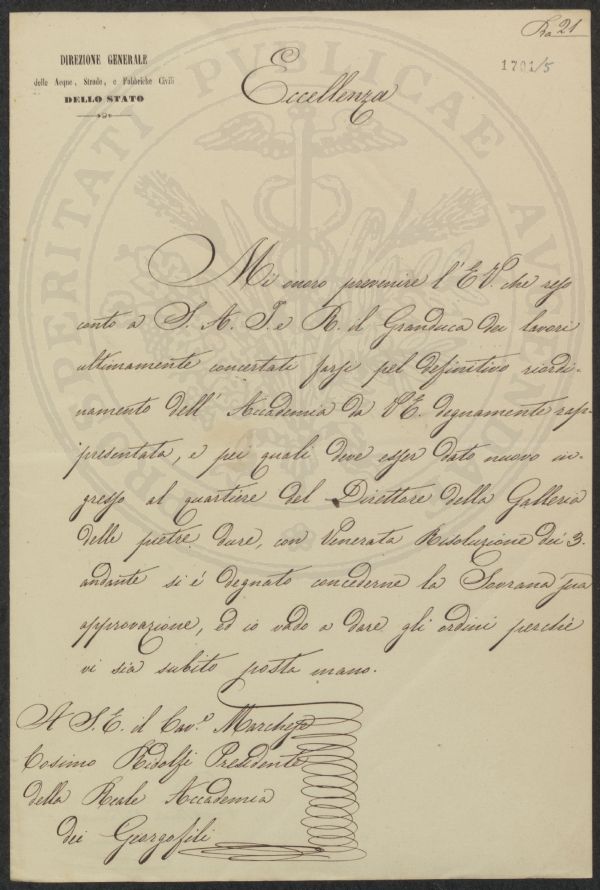 Bª 21
1701/5
DIREZIONE GENERALE
delle Acque, Strade, e Fabbriche Civili
DELLO STATO
Eccellenza
Mi onoro prevenire l'E.V. che reso
conto a S. A. I. e R. il Granduca dei lavori
ultimamente concertati farsi pel definitivo riordi-
namento dell' Accademia da V.E. degnamente rap-
presentata, e pei quali deve esser dato nuovo in-
gresso al quartiere del Direttore della Galleria
delle pietre dure, con Venerata Risoluzione dei 3.
andante si è degnato concederne la Sovrana sua
approvazione, ed io vado a dare gli ordini perchè
vi sia subito posta mano.
A S.E. il Cav.e Marchese
Cosimo Ridolfi Presidente
della Reale Accademia
dei Georgofili
PROSPERITATI PUBLICAE AUGENDAE